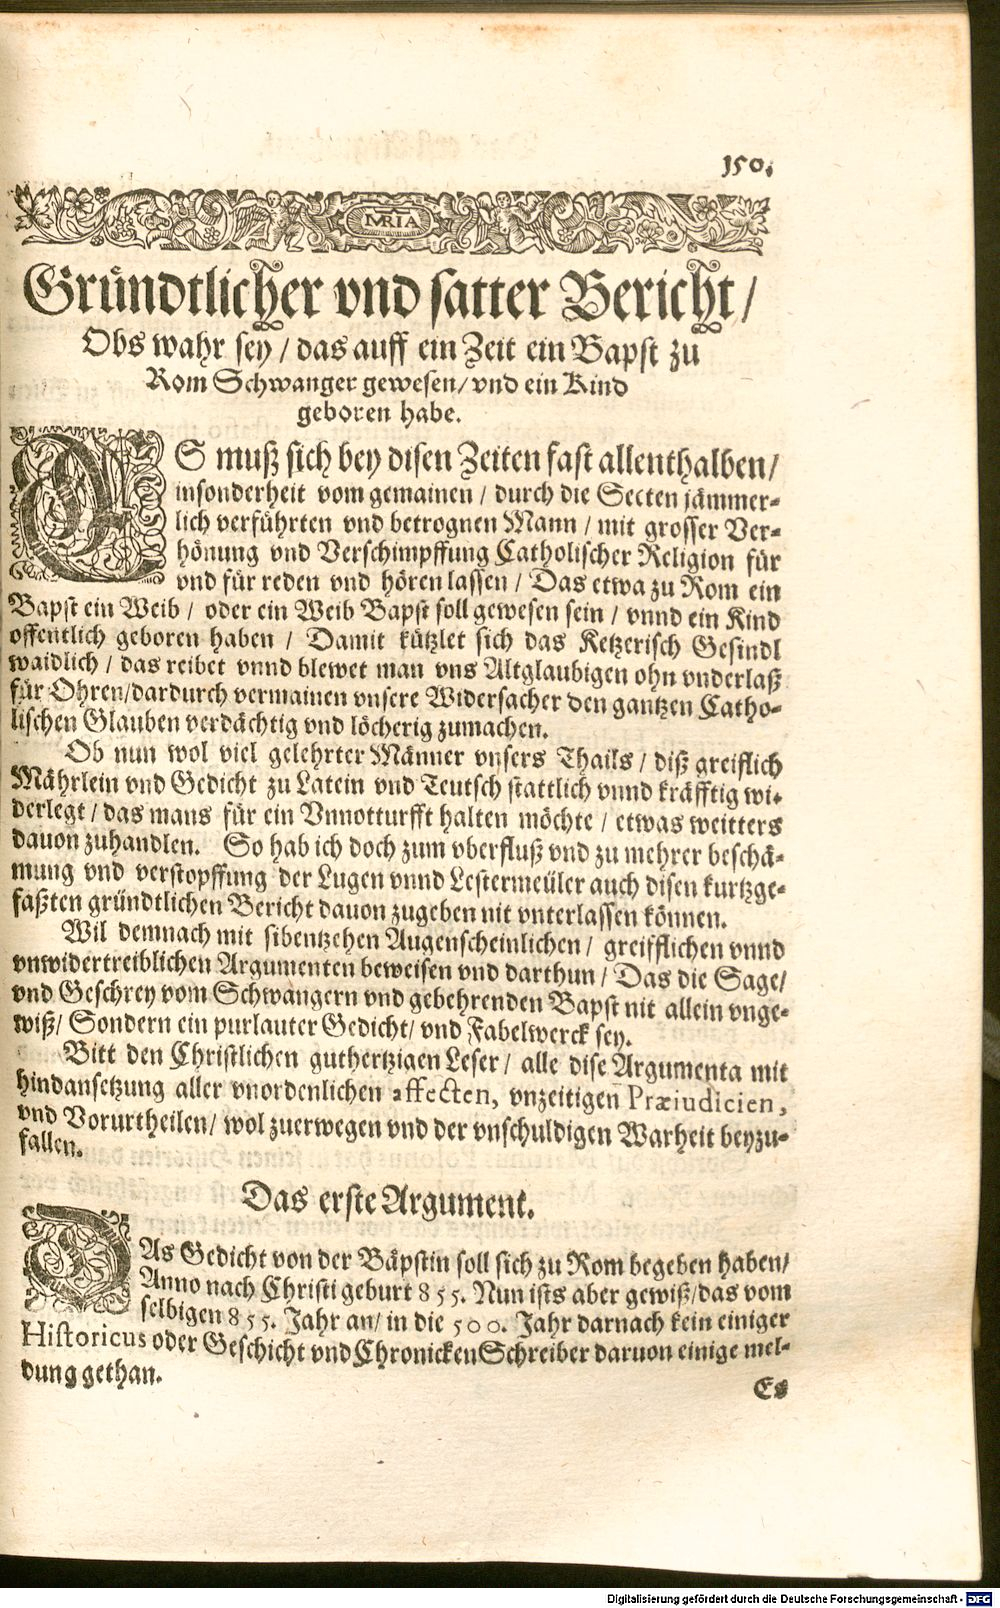 150.
MRIA
Gründtlicher vnd satter Bericht/
Obs wahr sey / das auff ein Zeit ein Bapst zu
Rom Schwanger gewesen/ vnd ein Kind
geboren habe.
ES muß sich bey disen Zeiten fast allenthalben/
insonderheit vom gemainen / durch die Secten jämmer-
lich verführten vnd betrognen Mann / mit grosser Ver-
hönung vnd Verschimpffung Catholischer Religion für
vnd für reden vnd hören lassen / Das etwa zu Rom ein
Bapst ein Weib / oder ein Weib Bapst soll gewesen sein / vnnd ein Kind
offentlich geboren haben / Damit kützlet sich das Ketzerisch Gesindl
waidlich / das reibet vnnd blewet man vns Altglaubigen ohn vnderlaß
für Ohren/dardurch vermainen vnsere Widersacher den gantzen Catho-
lischen Glauben verdächtig vnd löcherig zumachen.
Ob nun wol viel gelehrter Männer vnsers Thails / diß greiflich
Mährlein vnd Gedicht zu Latein vnd Teutsch stattlich vnnd kräfftig wi-
derlegt / das mans für ein Vnnotturfft halten möchte / etwas weitters
dauon zuhandlen. So hab ich doch zum vberfluß vnd zu mehrer beschä-
mung vnd verstopffung der Lugen vnnd Lestermeüler auch disen kurtzge-
faßten gründtlichen Bericht dauon zugeben nit vnterlassen können.
Wil demnach mit sibentzehen Augenscheinlichen / greifflichen vnnd
vnwidertreiblichen Argumenten beweisen vnd darthun / Das die Sage/
vnd Geschrey vom Schwangern vnd gebehrenden Bapst nit allein vnge-
wiß/ Sondern ein purlauter Gedicht/ vnd Fabelwerck sey.
Bitt den Christlichen guthertzigen Leser / alle dise Argumenta mit
hindansetzung aller vnordenlichen affecten, vnzeitigen Præiudicien,
vnd Vorurtheilen/ wol zuerwegen vnd der vnschuldigen Warheit beyzu-
fallen.
Das erste Argument.
DAs Gedicht von der Bäpstin soll sich zu Rom begeben haben/
Anno nach Christi geburt 855. Nun ists aber gewiß/das vom
selbigen 855. Jahr an/ in die 500. Jahr darnach kein einiger
Historicus oder Geschicht vnd Chronicken Schreiber daruon einige mel-
dung gethan.
Es
Digitalisierung gefördert durch die Deutsche Forschungsgemeinschaft - DFG